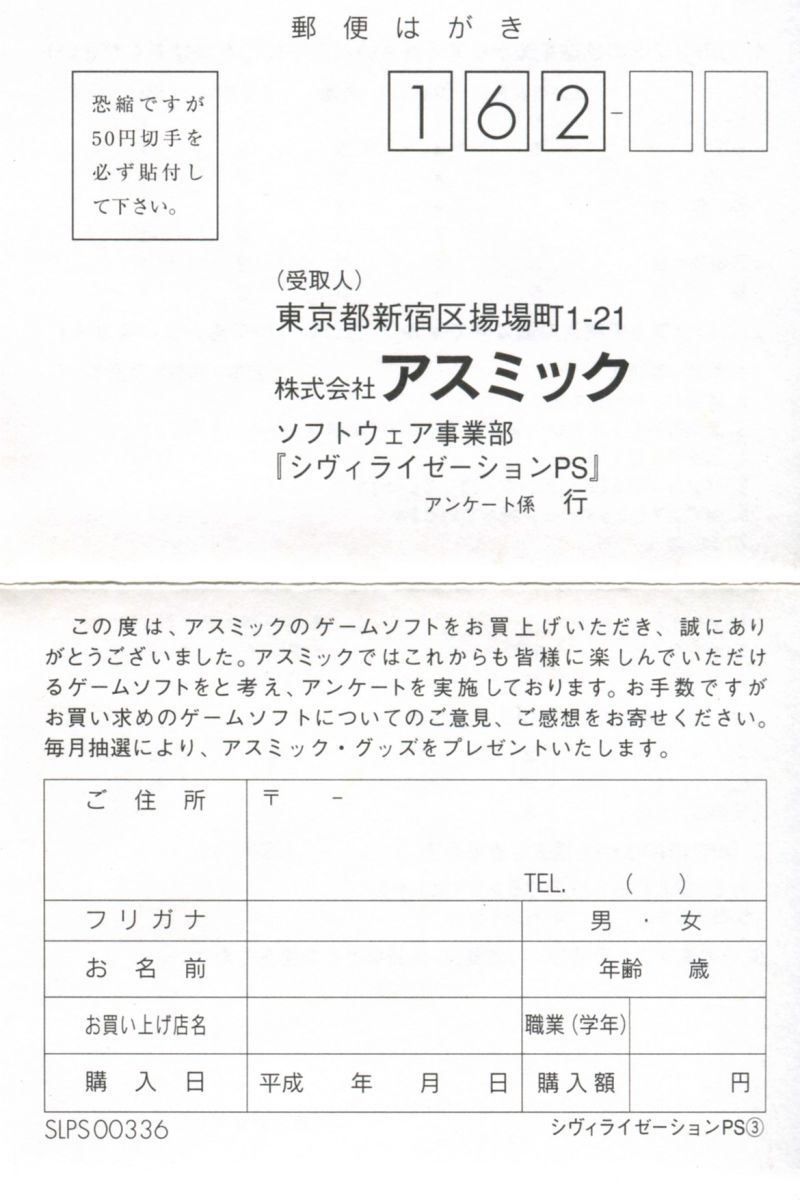 郵便はがき
恐縮ですが
50円切手を
必ず貼付し
て下さい。
162-
（受取人）
東京都新宿区揚場町1-21
株式会社 アスミック
ソフトウェア事業部
『シヴィライゼーションPS』
アンケート係 行
この度は、アスミックのゲームソフトをお買上げいただき、誠にあり
がとうございました。アスミックではこれからも皆様に楽しんでいただけ
るゲームソフトをと考え、アンケートを実施しております。お手数ですが
お買い求めのゲームソフトについてのご意見、ご感想をお寄せください。
毎月抽選により、アスミック・グッズをプレゼントいたします。
ご住所 〒 -
TEL. ( )
フリガナ 男・女
お名前 年齢 歳
お買い上げ店名 職業（学年）
購入日 平成 年 月 日 購入額 円
SLPS00336 シヴィライゼーションPS③